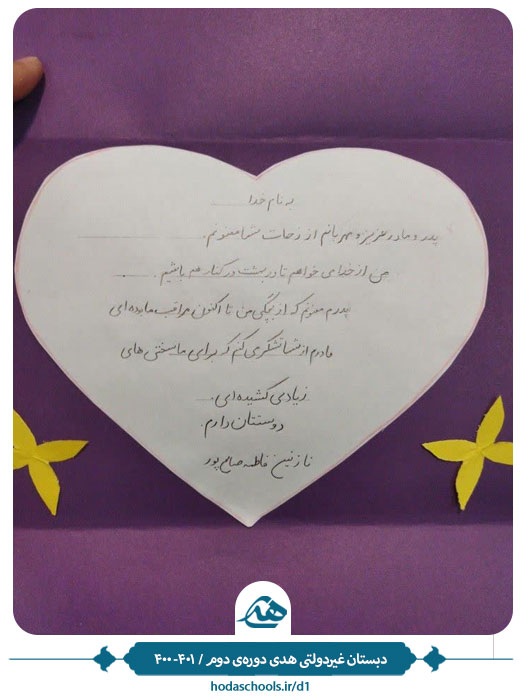 به نام خدا
پدر و مادر عزیز و مهربانم از زحمات شما ممنونم.
من از خدا می خواهم تا در بهشت در کنار هم باشیم.
پدرم ممنونم که از بچگی من تا اکنون مراقب ما بوده ای
مادرم از شما تشکر می کنم که برای ما سختی های
زیادی کشیده ای.
دوستتان دارم.
نازنین فاطمه صالح پور
هدی
دبستان غیردولتی هدی دوره‌ی دوم / ۴۰۱-۴۰۰
hodaschools.ir/d1